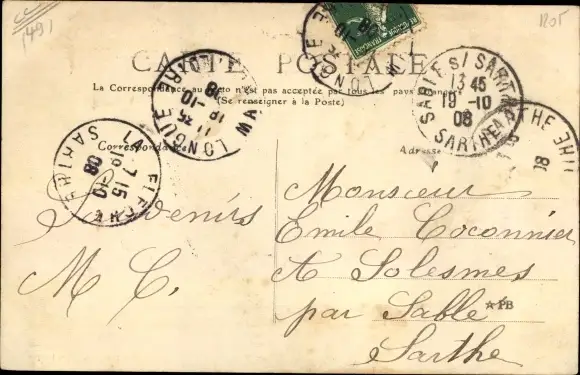 1491
1205
CARTE POSTALE
La Correspondance au recto n'est pas acceptée par tous les pays étrangers
(Se renseigner à la Poste)
Correspondance
Adresse
LONGUÉ
MAINE-ET-LOIRE
11 35
18 -10
08
SABLÉ S/ SARTHE
13 45
19 -10
08
SARTHE
LA FLECHE
7 15
19 -10
08
SARTHE
Souvenirs
M C.
Monsieur
Emile Coconnier
A Solesmes
par Sablé
☆PB
Sarthe